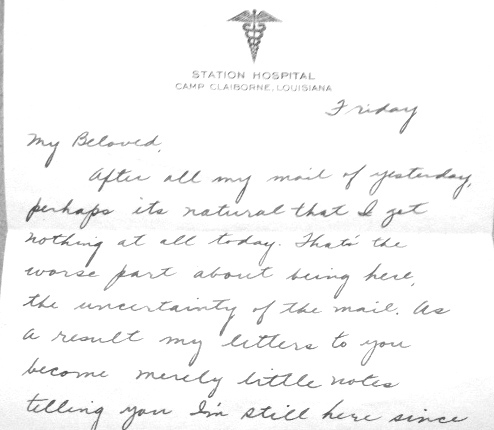 STATION HOSPITAL
CAMP CLAIBORNE, LOUISIANA
Friday
My Beloved,
After all my mail of yesterday,
perhaps its natural that I get
nothing at all today. Thats' the
worse part about being here,
the uncertainty of the mail. As
a result my letters to you
become merely little notes
telling you I'm still here since